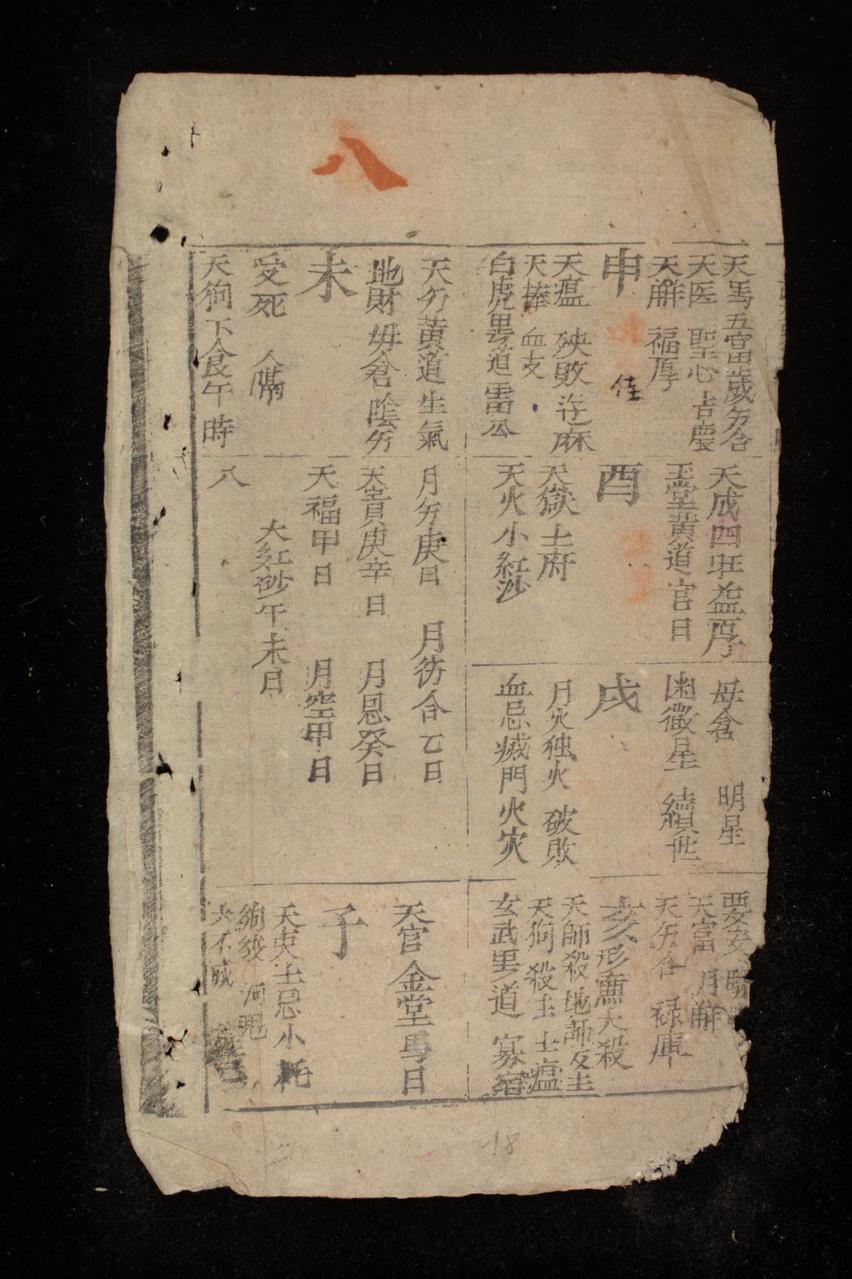 八
天馬五富歲穷合
天医 聖心 吉慶
天解 福厚
申
隹
天瘟 殃敗 迯麻
天捧 血支
白虎黑道 雷公
天成四旺益厚
玉堂黄道 官日
酉
天獄 土府
天火 小紅沙
母倉 明星
幽微星 續世
戌
月火独火 破敗
血忌㓕門火灾
要安
天富 月解
天穷合 禄庫
亥
大殺
天師殺地師殺土
天狗殺土 土瘟
玄武黑道 寡宿
天穷黄道 生氣
地財 母倉 陰穷
未
受死 人隔
天狗下食午時
月穷庚日 月穷合乙日
天貴庚辛日 月恩癸日
天福甲日 月空甲日
大紅沙午未日
八
天官 金堂 馬日
子
天吏土忌小耗
河魁
六不成
18